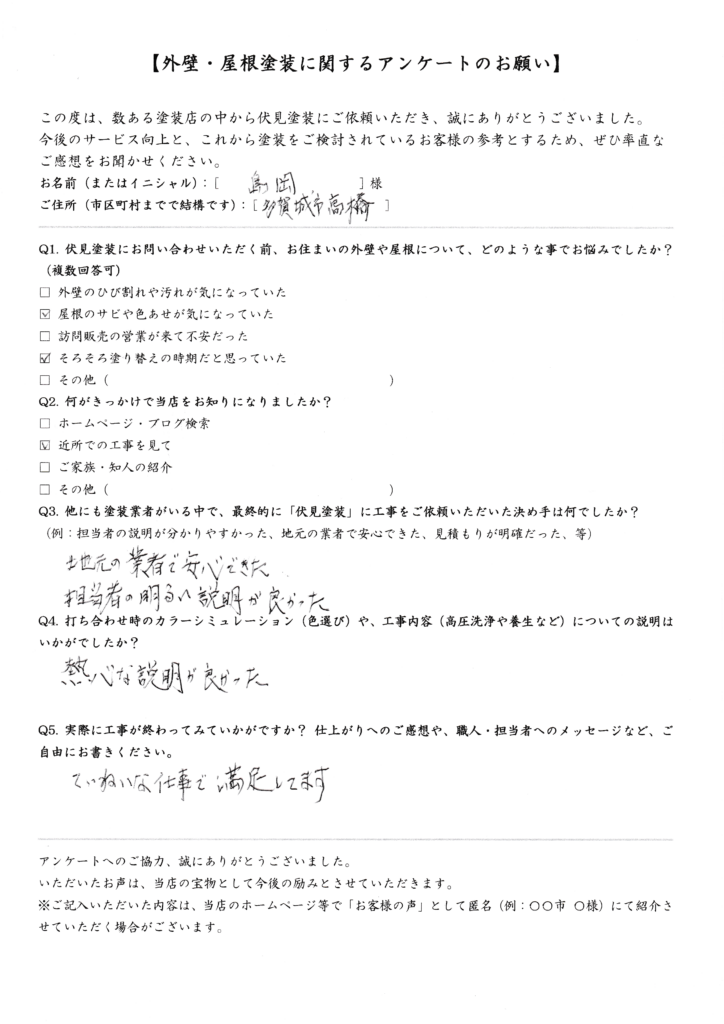 【外壁・屋根塗装に関するアンケートのお願い】
この度は、数ある塗装店の中から伏見塗装にご依頼いただき、誠にありがとうございました。
今後のサービス向上と、これから塗装をご検討されているお客様の参考とするため、ぜひ率直な
ご感想をお聞かせください。
お名前（またはイニシャル）：[ 島岡 ] 様
ご住所（市区町村までで結構です）：[ 多賀城市高橋 ]
Q1. 伏見塗装にお問い合わせいただく前、お住まいの外壁や屋根について、どのような事でお悩みでしたか？
（複数回答可）
☐ 外壁のひび割れや汚れが気になっていた
☑ 屋根のサビや色あせが気になっていた
☐ 訪問販売の営業が来て不安だった
☑ そろそろ塗り替えの時期だと思っていた
☐ その他（ ）
Q2. 何がきっかけで当店をお知りになりましたか？
☐ ホームページ・ブログ検索
☑ 近所での工事を見て
☐ ご家族・知人の紹介
☐ その他（ ）
Q3. 他にも塗装業者がいる中で、最終的に「伏見塗装」に工事をご依頼いただいた決め手は何でしたか？
（例：担当者の説明が分かりやすかった、地元の業者で安心できた、見積もりが明確だった、等）
地元の業者で安心できた
担当者の明るい説明が良かった
Q4. 打ち合わせ時のカラーシミュレーション（色選び）や、工事内容（高圧洗浄や養生など）についての説明は
いかがでしたか？
熱心な説明が良かった
Q5. 実際に工事が終わってみていかがですか？ 仕上がりへのご感想や、職人・担当者へのメッセージなど、ご
自由にお書きください。
ていねいな仕事で満足してます
アンケートへのご協力、誠にありがとうございました。
いただいたお声は、当店の宝物として今後の励みとさせていただきます。
※ご記入いただいた内容は、当店のホームページ等で「お客様の声」として匿名（例：〇〇市 〇様）にて紹介さ
せていただく場合がございます。